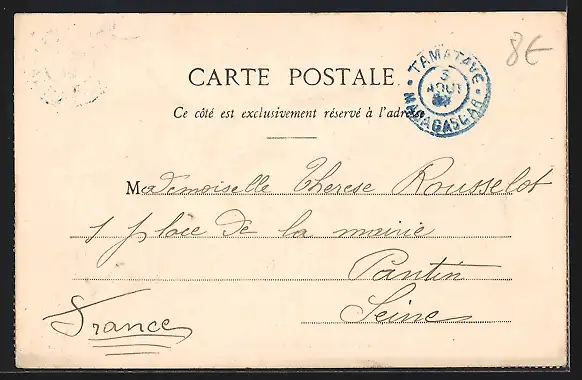 8€
TAMATAVE
5
AOUT
MADAGASCAR
CARTE POSTALE
Ce côté est exclusivement réservé à l'adresse
Mademoiselle Therese Rousselot
1 place de la mairie
Pantin
Seine
France